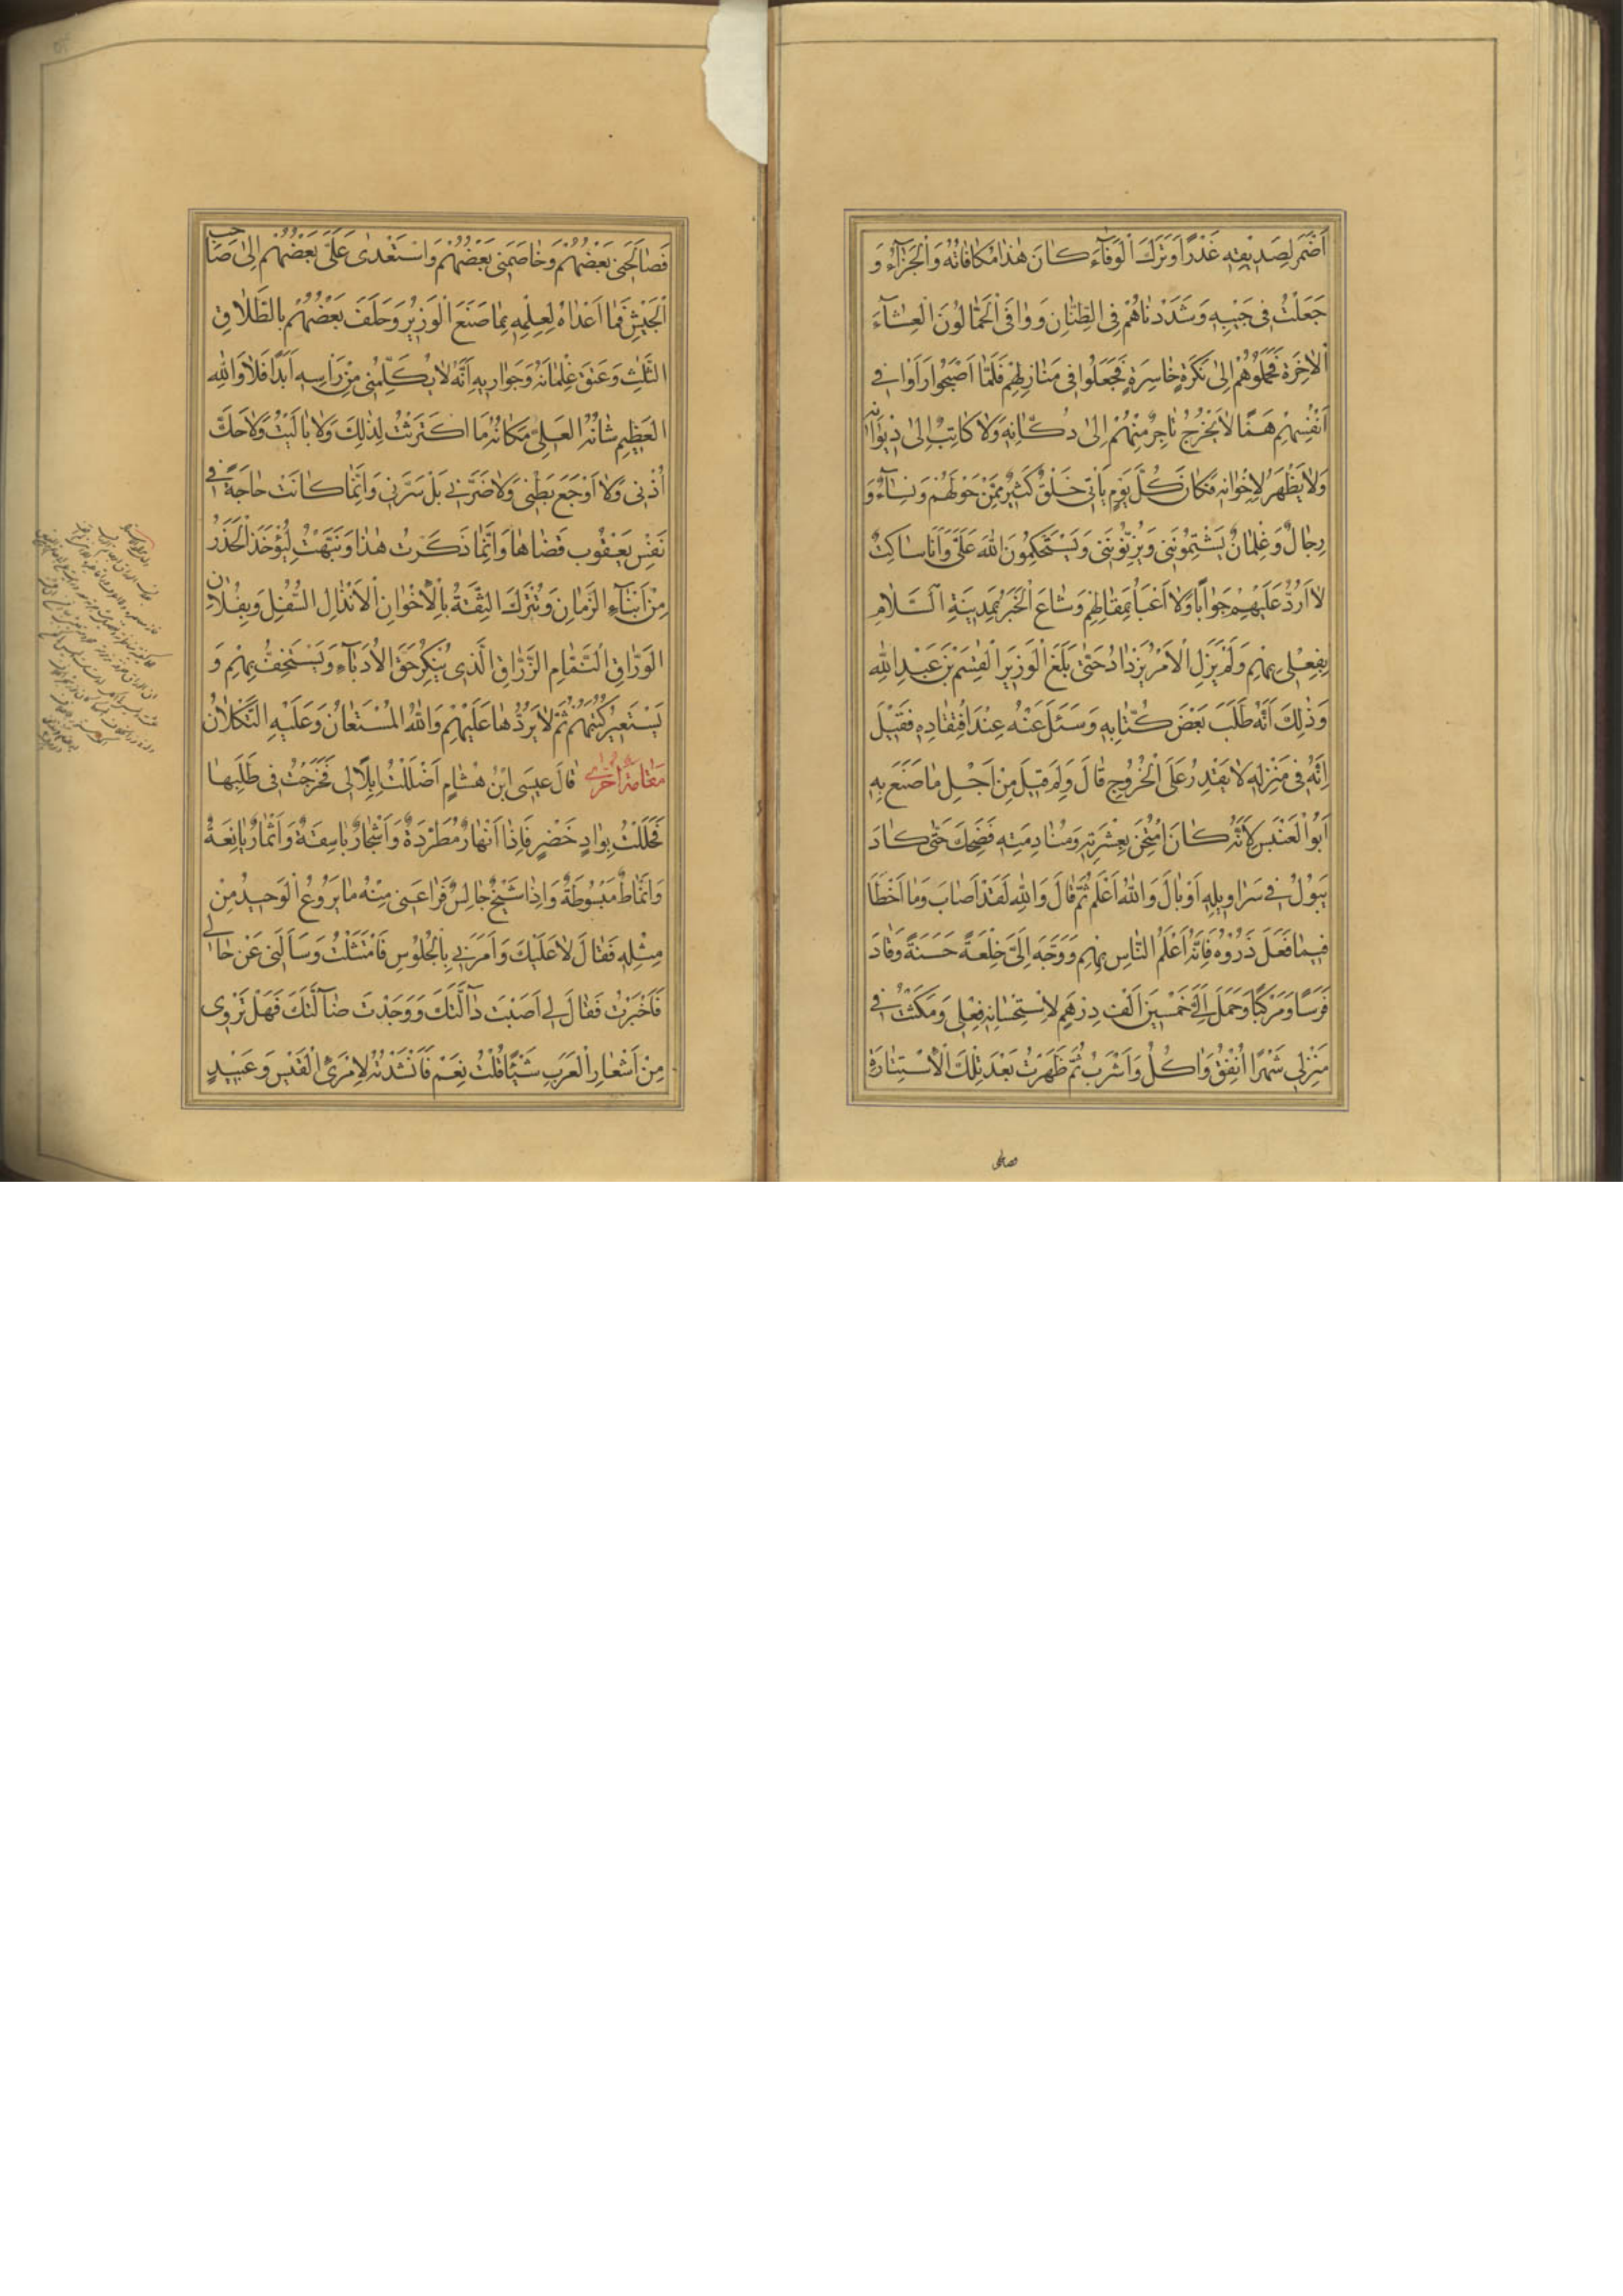 اَضْمَرَ لِصَدِيْقِهِ غَدْرًا وَتَرَكَ الْوَفَآءَ كَانَ هٰذَا مُكَافَاتُهُ وَالْجَزَآءُ وَ
جَعَلْتُ فِى جَيْبِهِ وَشَدَدْنَاهُمْ فِى الظِّنَانِ وَوَافَى الْحَمَّالُونَ الْعِشَآءَ
الْاٰخِرَةَ فَحَمَلُوهُمْ اِلٰى نَكْرَةٍ خَاسِرَةٍ فَجَعَلُوا فِى مَنَازِلِهِمْ فَلَمَّا اَصْبَحُوا رَاَوْا فِى
اَنْفُسِهِمْ هَمًّا لَايَخْرُجُ تَاجِرٌ مِنْهُمْ اِلٰى دُكَّانِهِ وَلَا كَاتِبٌ اِلٰى دِيْوَانِهِ
وَلَا يَظْهَرُ لِاِخْوَانِهِ فَكَانَ كُلَّ يَوْمٍ يَأتِى خَلْقٌ كَثِيْرٌ مِمَّنْ حَوْلَهُمْ وَنِسَآءٌ وَ
رِجَالٌ وَغِلْمَانٌ يَشْتِمُونَنِى وَيُزَنُّونَنِى وَيَسْتَحْكِمُونَ اللهَ عَلَىَّ وَاَنَا سَاكِتٌ
لَا اَرُدُّ عَلَيْهِمْ جَوَابًا وَلَا اَعْبَأُ بِمَقَالِهِمْ وَشَاعَ الْخَبَرُ بِمَدِيْنَةِ السَّلَامِ
بِفِعْلِى بِهِمْ وَلَمْ يَزَلِ الْاَمْرُ يَزْدَادُ حَتّٰى بَلَغَ الْوَزِيْرَ الْقٰسِمَ بْنَ عَبْدِ اللهِ
وَذٰلِكَ اَنَّهُ طَلَبَ بَعْضَ كُتَّابِهِ وَسَئَلَ عَنْهُ عِنْدَ افْتِقَادِهِ فَقِيْلَ
اِنَّهُ فِى مَنْزِلِهِ لَا يَقْدِرُ عَلَى الْخُرُوجِ قَالَ وَلِمَ قِيْلَ مِنْ اَجْلِ مَا صَنَعَ بِهِ
اَبُو الْعَنْبَسِ لِاَنَّهُ كَانَ امْتُحِنَ بِعِشْرَتِهِ وَمُنَادِمَتِهِ فَضَحِكَ حَتّٰى كَادَ
يَبُوْلُ فِى سَرَاوِيْلِهِ اَوْ بَالَ وَاللهُ اَعْلَمُ ثُمَّ قَالَ وَاللهِ لَقَدْ اَصَابَ وَمَا اَخْطَاَ
فِيْمَا فَعَلَ ذَرُوْهُ فَاِنَّهُ اَعْلَمُ النَّاسِ بِهِمْ وَوَجَّهَ اِلَىَّ خِلْعَةً حَسَنَةً وَقَادَ
فَرَسًا وَمَرْكَبًا وَحَمَلَ اِلَىَّ خَمْسِيْنَ اَلْفَ دِرْهَمٍ لِاسْتِحْسَانِهِ فِعْلِى وَمَكَثْتُ فِى
مَنْزِلِى شَهْرًا اُنْفِقُ وَاٰكُلُ وَاَشْرَبُ ثُمَّ ظَهَرْتُ بَعْدَ تِلْكَ الْاِسْتِتَارَةِ
فصالحنى
فَصَالَحَنِى بَعْضُهُمْ وَخَاصَمَنِى بَعْضُهُمْ وَاسْتَعْدٰى عَلَىَّ بَعْضُهُمْ اِلٰى صَاحِبِ
الْجَيْشِ فَمَا اَعْدَاهُ لِعِلْمِهِ بِمَا صَنَعَ الْوَزِيْرُ وَحَلَفَ بَعْضُهُمْ بِالطَّلَاقِ
الثَّلٰثِ وَعَتَقَ غِلْمَانَهُ وَجَوَارِيهِ اَنَّهُ لَايُكَلِّمُنِى مِنْ رَأسِهِ اَبَدًا فَلَا وَاللهِ
الْعَظِيْمِ شَانُهُ الْعَلِىِّ مَكَانُهُ مَا اكْتَرَثْتُ لِذٰلِكَ وَلَا بَالَيْتُ وَلَا حَكَّ
اُذُنِى وَلَا اَوْجَعَ بَطْنِى وَلَا ضَرَّنِى بَلْ سَرَّنِى وَاِنَّمَا كَانَتْ حَاجَةً فِى
نَفْسِ يَعْقُوبَ قَضَاهَا وَاِنَّمَا ذَكَرْتُ هٰذَا وَنَبَّهْتُ لِيُؤْخَذَ الْحَذَرُ
مِنْ اَبْنَآءِ الزَّمَانِ وَتُتْرَكَ الثِّقَةُ بِالْاِخْوَانِ الْاَنْذَالِ السُّفَّلِ وَبِفُلَانٍ
الْوَرَّاقِ النَّمَّامِ الزَّرَّاقِ الَّذِى يُنْكِرُ حَقَّ الْاُدَبَآءِ وَيَسْتَخِفُّ بِهِمْ وَ
يَسْتَعِيْرُ كُتُبَهُمْ ثُمَّ لَا يَرُدُّهَا عَلَيْهِمْ وَاللهُ الْمُسْتَعَانُ وَعَلَيْهِ التُّكْلَانُ
مَقَامَةٌ اُخْرٰى قَالَ عِيْسَى ابْنُ هِشَامٍ اَضْلَلْتُ اِبِلًا لِى فَخَرَجْتُ فِى طَلَبِهَا
فَحَلَلْتُ بِوَادٍ خَضِرٍ فَاِذَا اَنْهَارٌ مُطَّرِدَةٌ وَاَشْجَارٌ بَاسِقَةٌ وَاَثْمَارٌ يَانِعَةٌ
وَاَنْمَاطٌ مَبْسُوطَةٌ وَاِذَا شَيْخٌ جَالِسٌ فَرَاعَنِى مِنْهُ مَا يَرُوْعُ الْوَحِيْدُ مِنْ
مِثْلِهِ فَقَالَ لَا عَلَيْكَ وَاَمَرَنِى بِالْجُلُوْسِ فَامْتَثَلْتُ وَسَاَلَنِى عَنْ حَالِى
فَاَخْبَرْتُ فَقَالَ لِى اَصَبْتَ دَآلَّتَكَ وَوَجَدْتَ ضَآلَّتَكَ فَهَلْ تَرْوِى
مِنْ اَشْعَارِ الْعَرَبِ شَيْئًا قُلْتُ نِعَمْ فَاَنْشَدْتُهُ لِامْرِئِ الْقَيْسِ وَعَبِيْدٍ